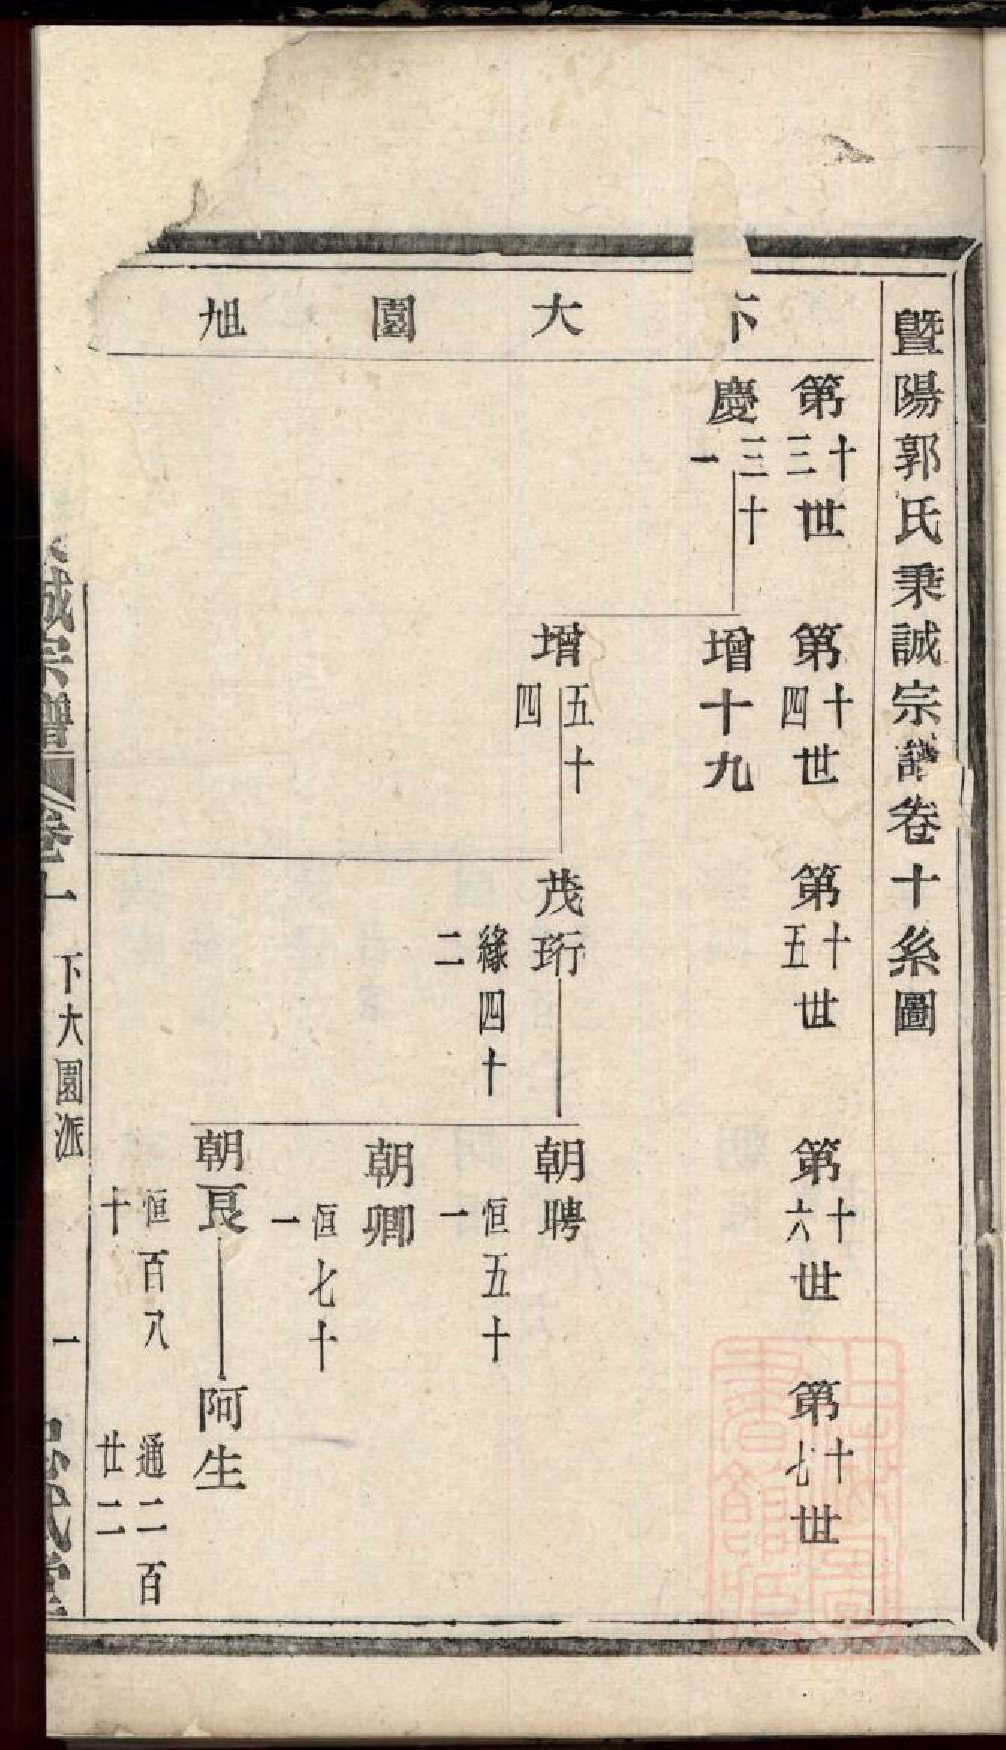 暨陽郭氏秉誠宗譜卷十糸圖
下大園旭
第十三世
第十四世
第十五世
第十六世
第十七世
慶三十一
增十九
增五十四
茂珩
緣四十二
朝聘
恒五十一
朝卿
恒七十一
朝艮
恒百八十
阿生
通二百廿二
誠宗譜
卷十
下大園派
一